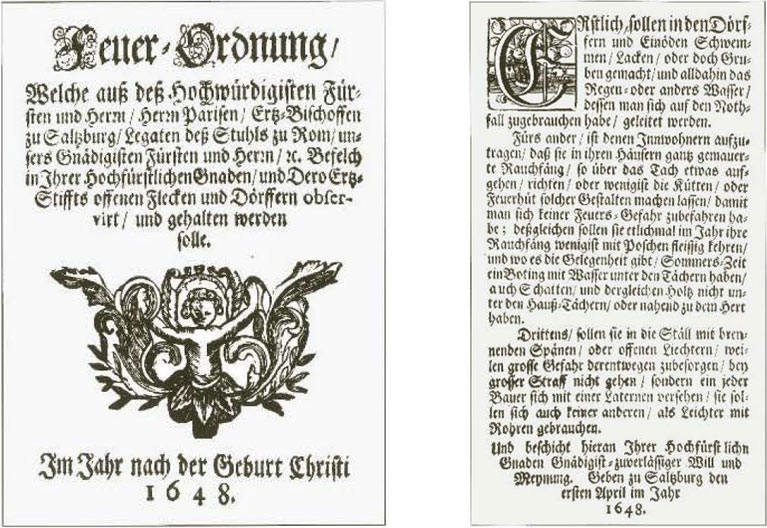 Feuer-Ordnung/
Welche auß deß Hochwürdigisten Für-
sten und Herrn/ Herrn Parisen/ Ertz-Bischoffen
zu Saltzburg/ Legaten deß Stuhls zu Rom/ un-
sers Gnädigisten Fürsten und Herrn/ ꝛc. Befelch
in Ihrer Hochfürstlichen Gnaden/ und Dero Ertz-
Stiffts offenen Flecken und Dörffern obser-
virt/ und gehalten werden
solle.
Im Jahr nach der Geburt Christi
1648.
ERstlich/ sollen in den Dörf-
fern und Einöden Schwem-
men/ Lacken/ oder doch Gru-
ben gemacht/ und alldahin das
Regen- oder anders Wasser/
dessen man sich auf den Noth-
fall zugebrauchen habe/ geleitet werden.
Fürs ander/ ist denen Innwohnern aufzu-
tragen/ daß sie in ihren Häusern gantz gemauer-
te Rauchfäng/ so über das Tach etwas auf-
gehen/ richten/ oder wenigist die Kütten/ oder
Feuerhüt solcher Gestalten machen lassen/ damit
man sich keiner Feuers-Gefahr zubefahren ha-
be; deßgleichen sollen sie etlichmal im Jahr ihre
Rauchfäng wenigist mit Poschen fleissig kehren/
und wo es die Gelegenheit gibt/ Sommers-Zeit
ein Boting mit Wasser unter den Tächern haben/
auch Schatten/ und dergleichen Holtz nicht un-
ter den Hauß-Tächern/ oder nahend zu dem Hert
haben.
Drittens/ sollen sie in die Ställ mit bren-
nenden Spänen/ oder offenen Liechtern/ wei-
len grosse Gefahr derentwegen zubesorgen/ bey
grosser Straff nicht gehen/ sondern ein jeder
Bauer sich mit einer Laternen versehen/ sie sol-
len sich auch keiner anderen/ als Leichter mit
Rohren gebrauchen.
Und beschicht hieran Ihrer Hochfürstlichn
Gnaden Gnädigist-zuverläßiger Will und
Meynung. Geben zu Saltzburg den
ersten April im Jahr
1648.